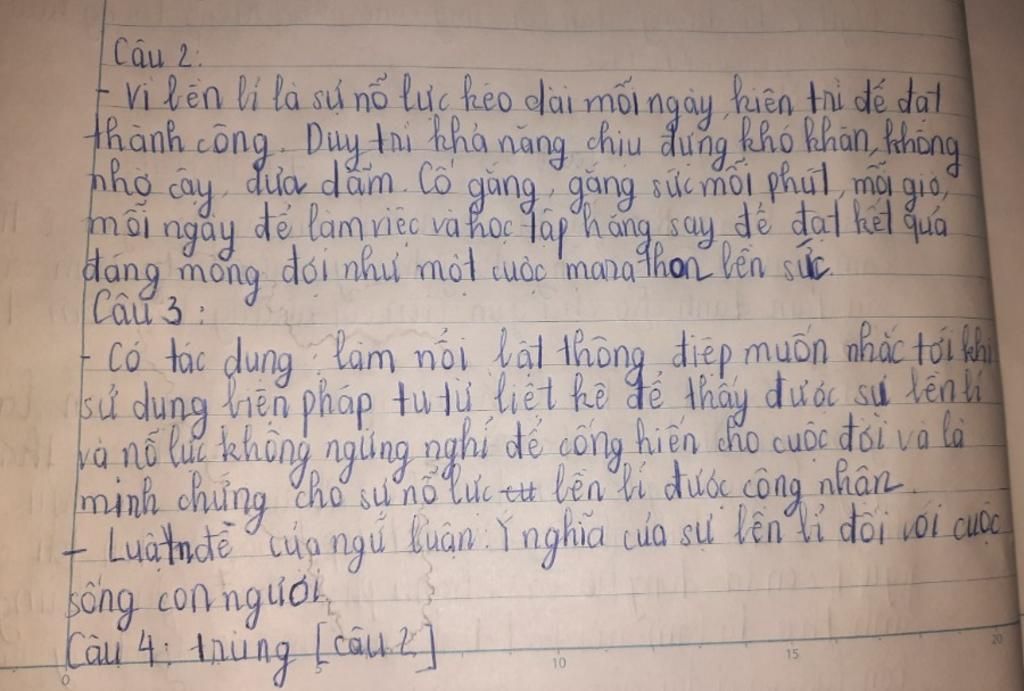 Câu 2:
- Vì bền bỉ là sự nỗ lực kéo dài mỗi ngày, kiên trì để đạt
thành công. Duy trì khả năng chịu đựng khó khăn, không
nhờ cậy, dựa dẫm. Cố gắng, gắng sức mỗi phút, mỗi giờ,
mỗi ngày để làm việc và học tập hăng say để đạt kết quả
đáng mong đợi như một cuộc marathon bền sức.
Câu 3:
- Có tác dụng: làm nổi bật thông điệp muốn nhắc tới khi
sử dụng biện pháp tu từ liệt kê để thấy được sự bền bỉ
và nỗ lực không ngừng nghỉ để cống hiến cho cuộc đời và là
minh chứng cho sự nỗ lực bền bỉ được công nhận.
- Luận đề của ngữ luận: Ý nghĩa của sự bền bỉ đối với cuộc
sống con người.
Câu 4: trùng [câu 2]
0 5 10 15 20